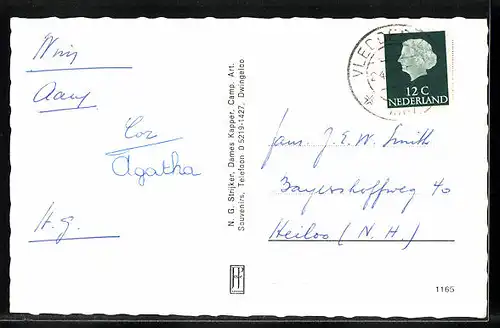 Wim
Aauf
Cor
Agatha
H.G.
N. G. Strijker, Dames Kapper, Camp. Art.
Souvenirs, Telefoon D 5219-1427, Dwingeloo
VLEDDER
12 C
NEDERLAND
Fam. J.E.W. Smith
Bayershoffweg 40
Heiloo (N.H.)
1165